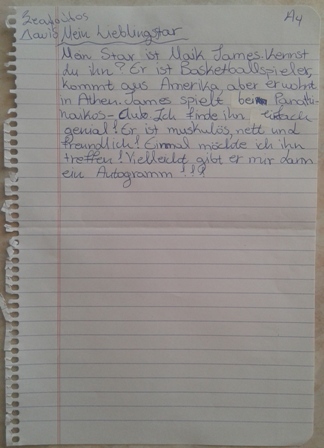 A4
Mein Lieblingstar
Mein Star ist Maik James. Kennst
du ihn? Er ist Basketballspieler,
kommt aus Amerika, aber er wohnt
in Athen. James spielt beim Panathi-
naikos-Club. Ich finde ihn einfach
genial! Er ist muskulös, nett und
freundlich! Einmal möchte ich ihn
treffen! Vielleicht gibt er mir dann
ein Autogramm!!!